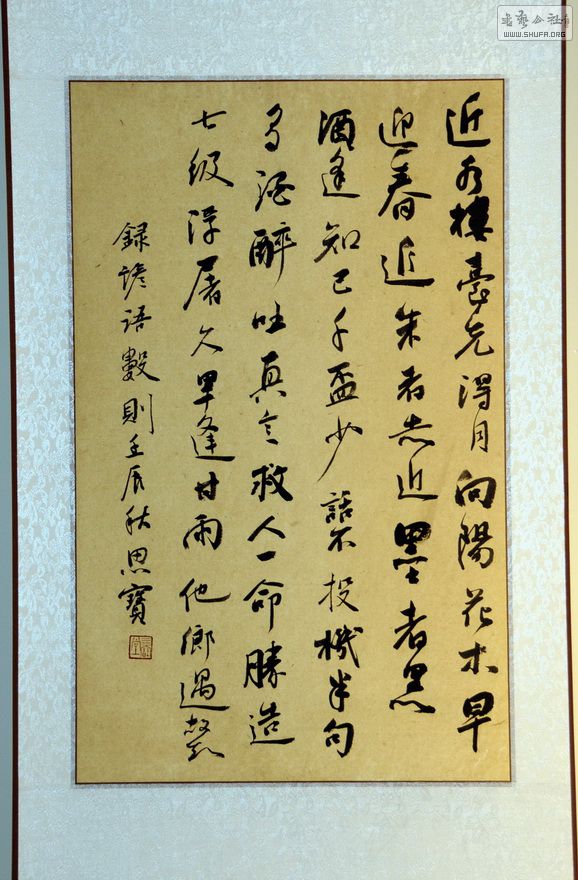 近水楼臺先得月向陽花木早
迎春近朱者赤近墨者黑
酒逢知己千盃少話不投機半句
多酒醉吐真言救人一命勝造
七级浮屠久旱逢甘雨他鄉遇故知
録諺语數則壬辰秋思寶
WWW.SHUFA.ORG